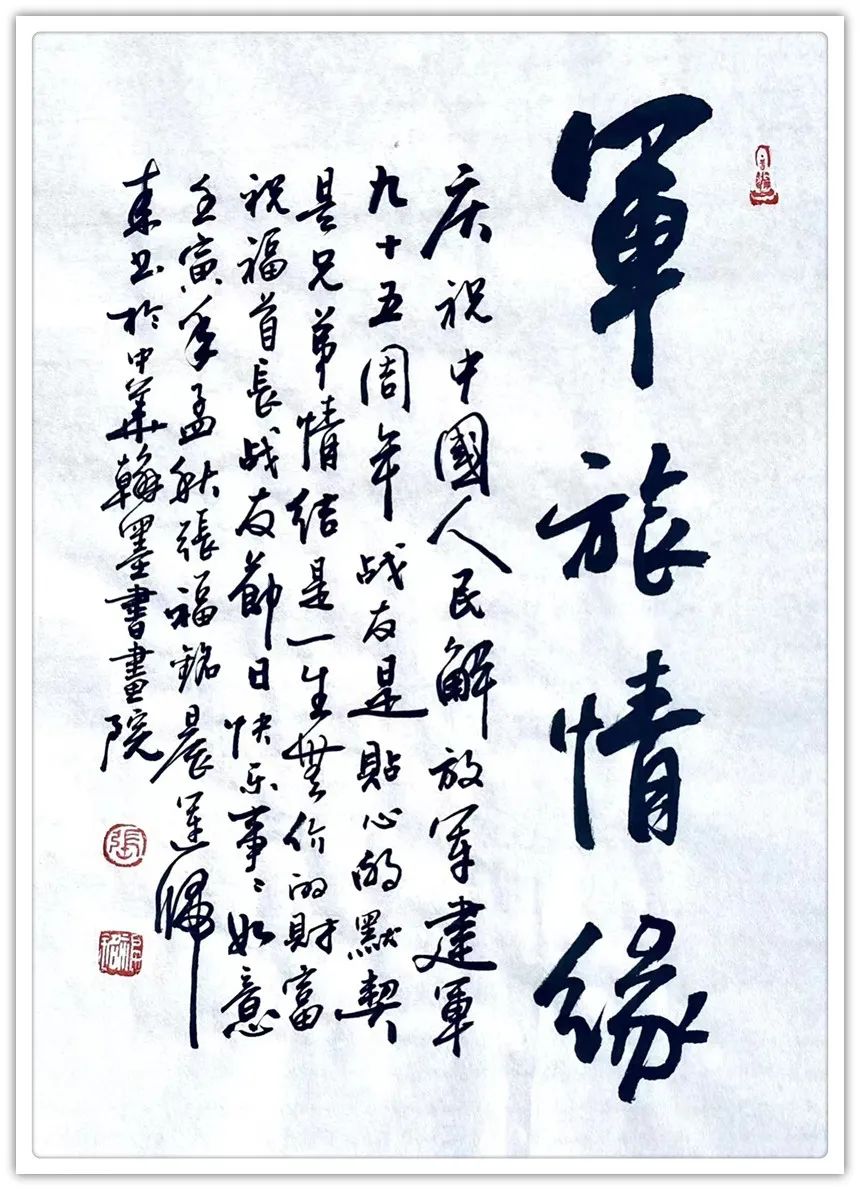 軍旅情缘
庆祝中國人民解放军建軍
九十五周年战友是貼心的默契
是兄弟情结是一生無价的財富
祝福首長战友節日快乐事事如意
壬寅年孟秋張福銘晨運歸
来书於中华翰墨書畫院
張